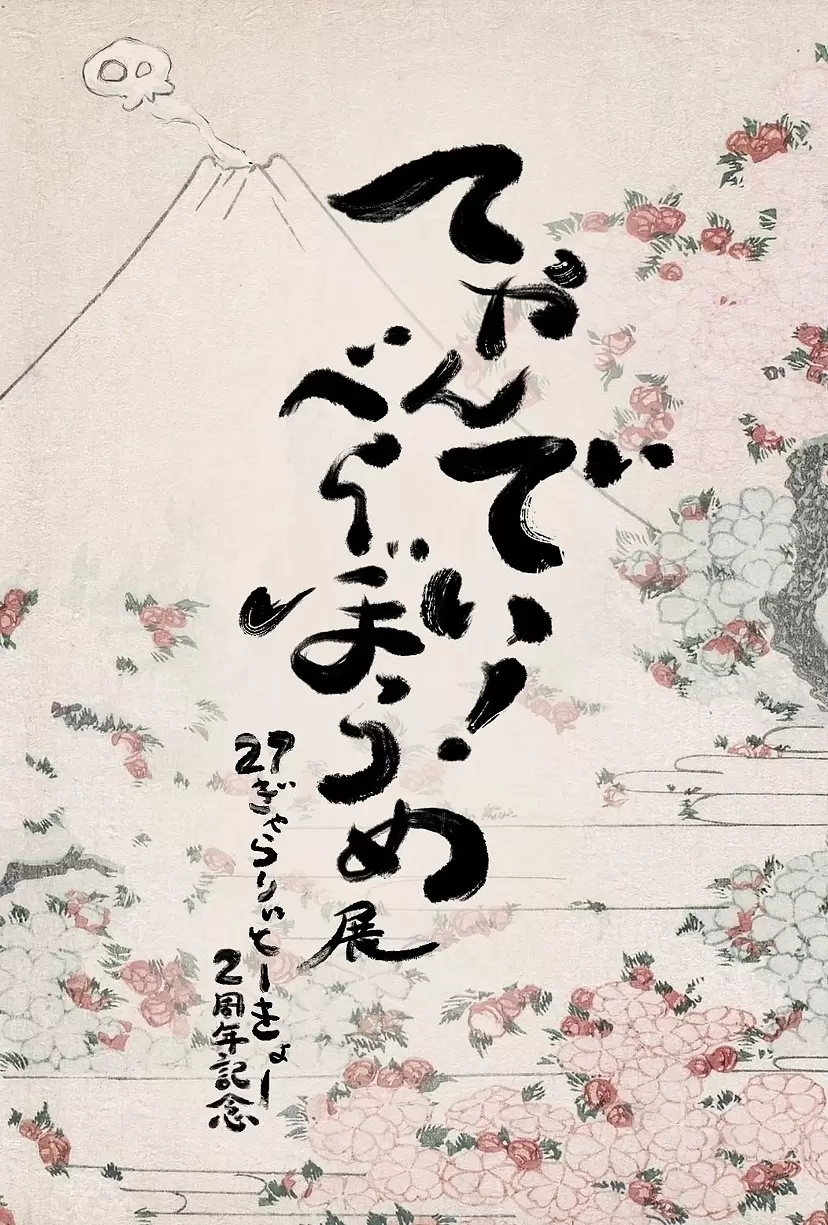 てやんでい!
べらぼうめ展
27ぎゃらりぃとーきょー
2周年記念